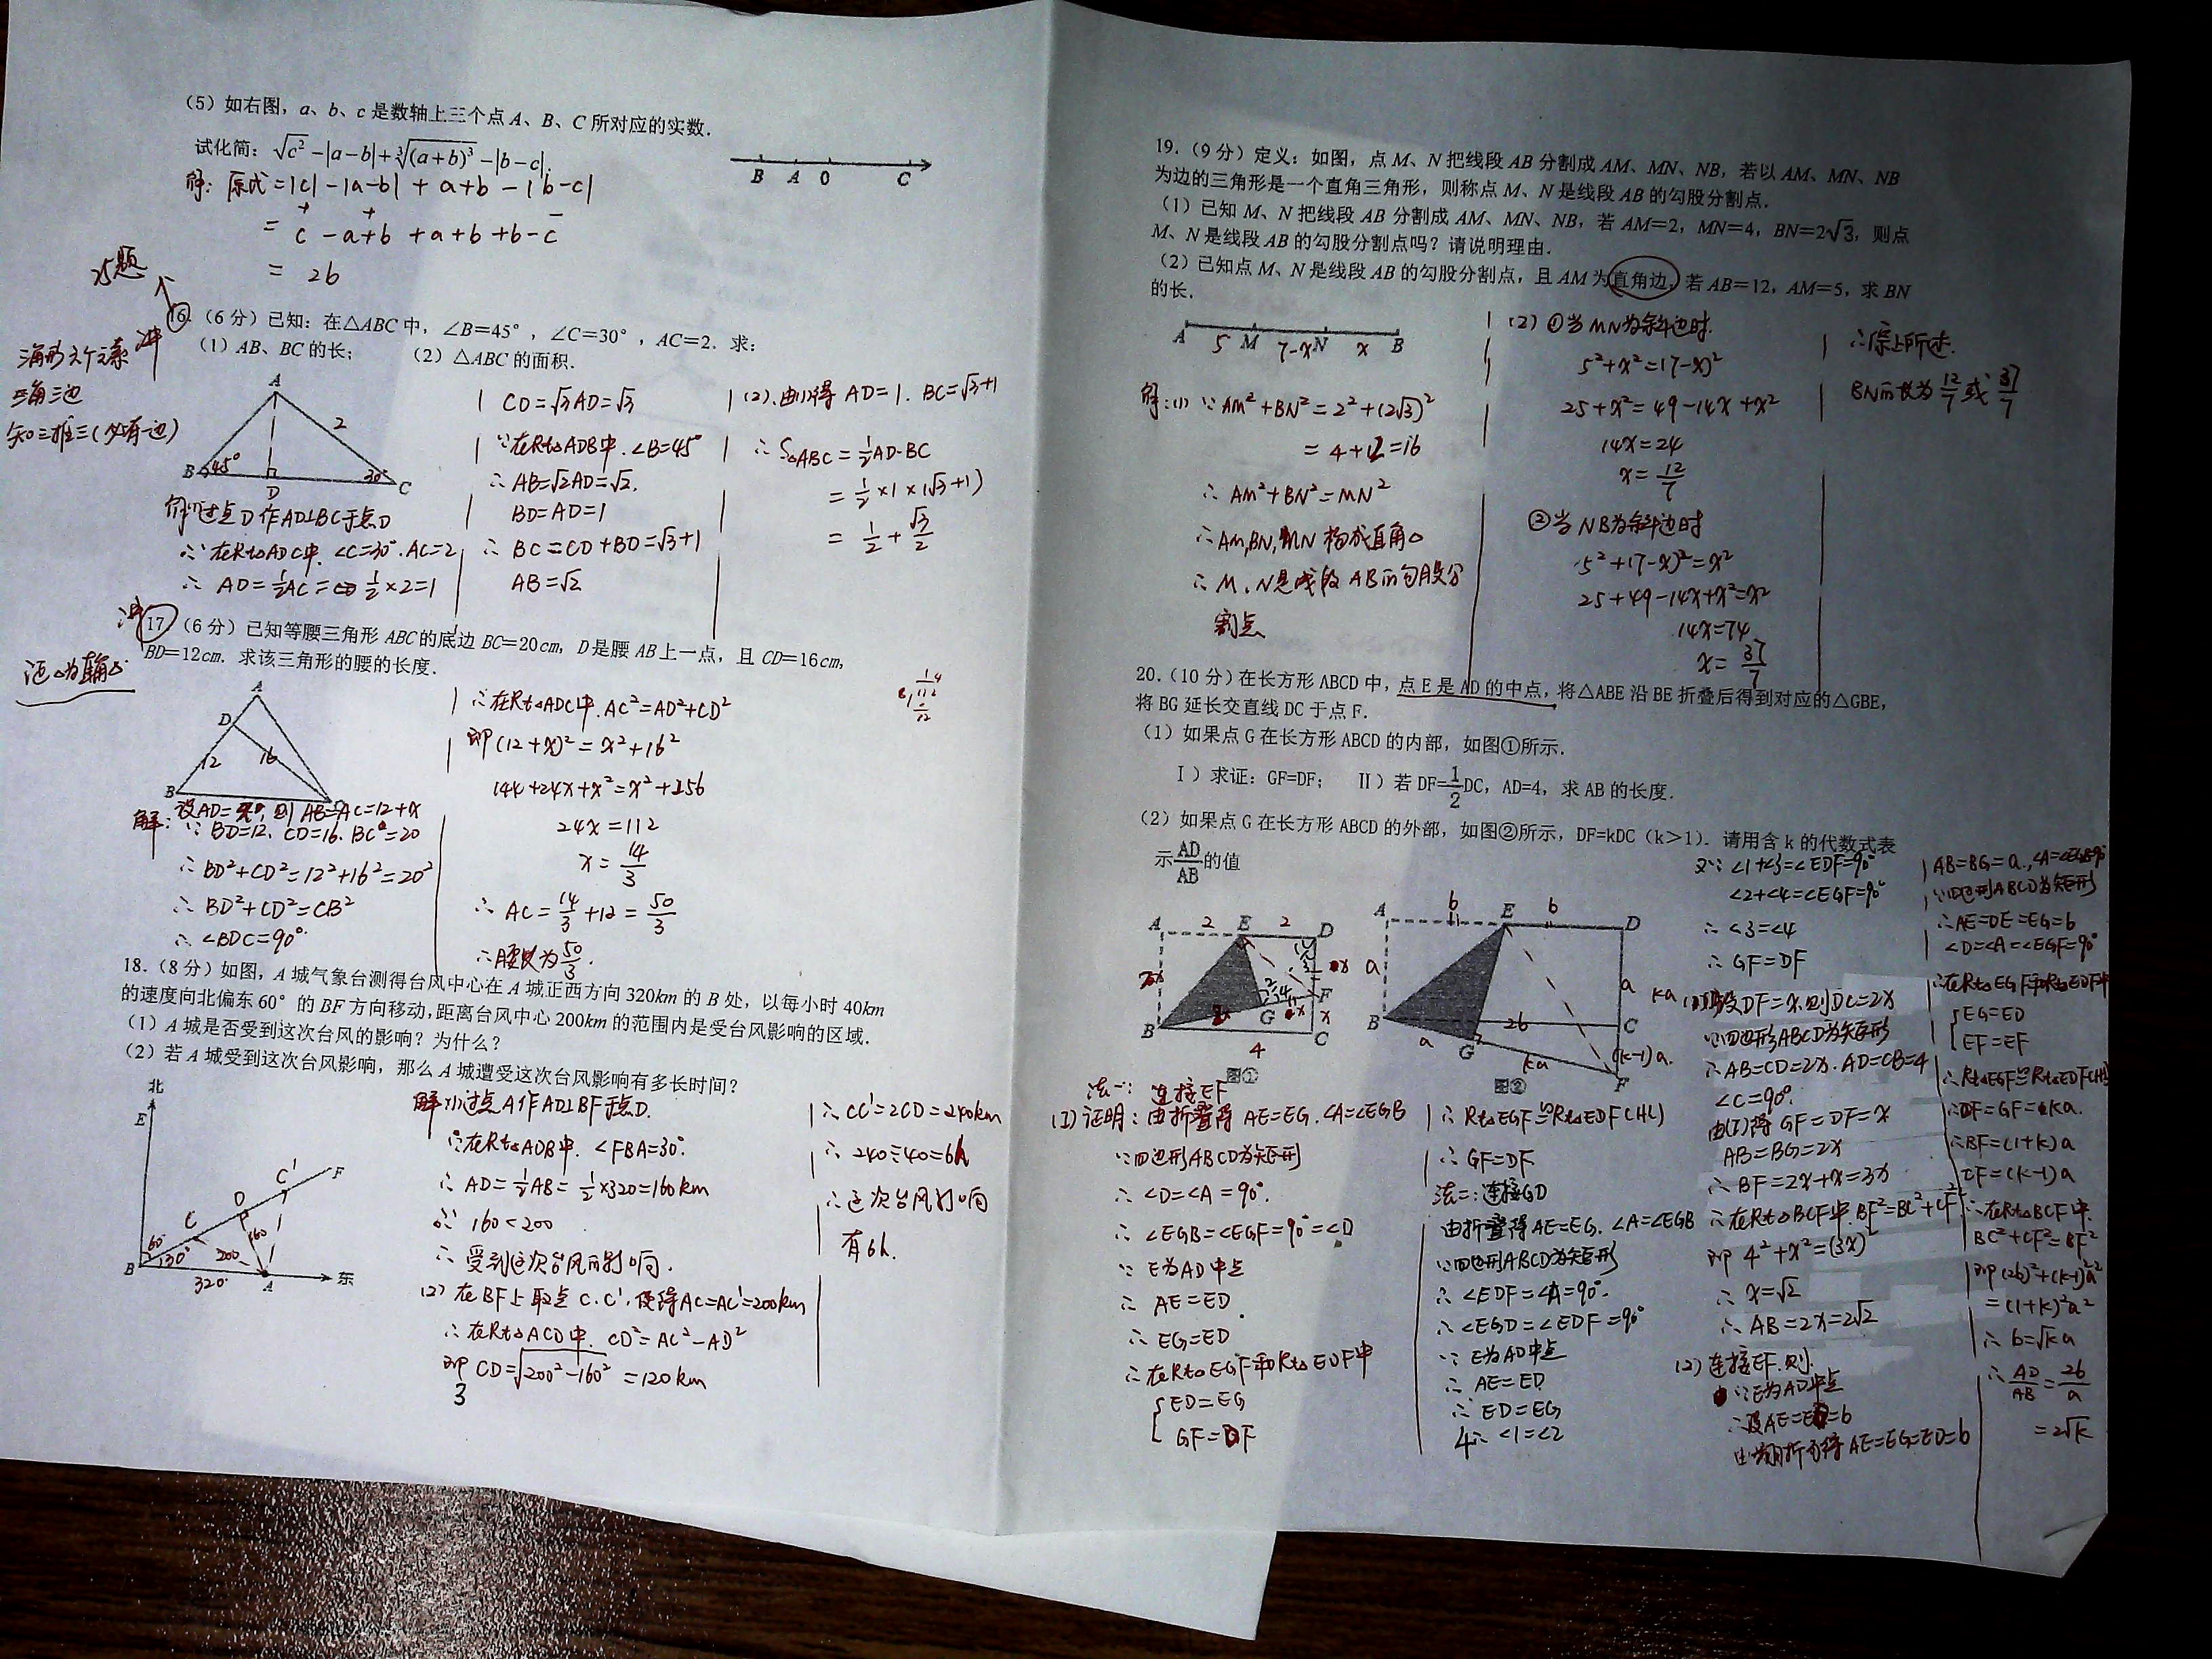 (5) 如右图，a、b、c 是数轴上三个点 A、B、C 所对应的实数.
试化简: √c² −|a−b|+∛(a+b)³ −|b−c|.
B A 0 C
解: 原式=|c|−|a−b| + a+b − |b−c|
= c −a+b +a+b +b−c
= 2b
25题
16. (6 分) 已知: 在△ABC 中，∠B=45°，∠C=30°，AC=2. 求:
(1) AB、BC 的长; (2) △ABC 的面积.
三角三边
知三推三(必有一边)
A
2
B 45° 30° C
D
过点D作AD⊥BC于点D
∵在Rt△ADC中. ∠C=30°. AC=2
∴ AD=½AC= ½×2=1
CD=√3AD=√3
∵在Rt△ADB中. ∠B=45°
∴ AB=√2AD=√2.
BD=AD=1
∴ BC=CD+BD=√3+1
AB=√2
(2).由(1)得 AD=1. BC=√3+1
∴ S△ABC=½AD·BC
=½×1×(√3+1)
= ½+√3/2
17. (6 分) 已知等腰三角形 ABC 的底边 BC=20cm，D 是腰 AB 上一点，且 CD=16cm，
BD=12cm. 求该三角形的腰的长度.
A
D
12 16
B
解: 设AD=x, 则AB=AC=12+x
∵ BD=12. CD=16. BC=20
∴ BD²+CD²=12²+16²=20²
∴ BD²+CD²=CB²
∴ ∠BDC=90°.
∴在Rt△ADC中. AC²=AD²+CD²
即(12+x)²=x²+16²
144+24x+x²=x²+256
24x=112
x=14/3
∴ AC=14/3+12=50/3
∴腰长为50/3.
18. (8 分) 如图，A 城气象台测得台风中心在 A 城正西方向 320km 的 B 处，以每小时 40km
的速度向北偏东 60° 的 BF 方向移动，距离台风中心 200km 的范围内是受台风影响的区域.
(1) A 城是否受到这次台风的影响? 为什么?
(2) 若 A 城受到这次台风影响，那么 A 城遭受这次台风影响有多长时间?
北
E
C' F
D
C
60° 30° 200 160
B 320 A 东
解(1)过点A作AD⊥BF于点D.
∵在Rt△ADB中. ∠FBA=30°
∴ AD=½AB=½×320=160km
∵ 160<200
∴ 受到这次台风的影响.
(2) 在BF上取点C.C'.使得AC=AC'=200km
∴在Rt△ACD中. CD²=AC²−AD²
即 CD=√200²−160² =120km
∴ CC'=2CD=240km
∴ 240÷40=6h
∴这次台风影响
有6h.
3
19. (9 分) 定义: 如图，点 M、N 把线段 AB 分割成 AM、MN、NB，若以 AM、MN、NB
为边的三角形是一个直角三角形，则称点 M、N 是线段 AB 的勾股分割点.
(1) 已知 M、N 把线段 AB 分割成 AM、MN、NB，若 AM=2，MN=4，BN=2√3，则点
M、N 是线段 AB 的勾股分割点吗? 请说明理由.
(2) 已知点 M、N 是线段 AB 的勾股分割点，且 AM 为直角边，若 AB=12，AM=5，求 BN
的长.
A 5 M 7−x N x B
解:(1) ∵AM²+BN²=2²+(2√3)²
=4+12=16
∴ AM²+BN²=MN²
∴AM,BN,MN 构成直角△
∴ M、N是线段AB的勾股分
割点
(2) ①当MN为斜边时.
5²+x²=(7−x)²
25+x²=49−14x+x²
14x=24
x=12/7
②当NB为斜边时
5²+(7−x)²=x²
25+49−14x+x²=x²
14x=74
x=37/7
∴综上所述.
BN的长为12/7或37/7
20. (10 分) 在长方形 ABCD 中，点 E 是 AD 的中点，将△ABE 沿 BE 折叠后得到对应的△GBE，
将 BG 延长交直线 DC 于点 F.
(1) 如果点 G 在长方形 ABCD 的内部，如图①所示.
Ⅰ) 求证: GF=DF; Ⅱ) 若 DF=1/2DC，AD=4，求 AB 的长度.
(2) 如果点 G 在长方形 ABCD 的外部，如图②所示，DF=kDC (k>1). 请用含 k 的代数式表
示AD/AB的值
A 2 E 2 D
F
G x
B 4 C
图①
A b E b D
a a ka
B 2b C
a G ka (k−1)a.
F
图②
法一: 连接EF
(I)证明: 由折叠得 AE=EG. ∠A=∠EGB
∵四边形ABCD为矩形
∴ ∠D=∠A=90°.
∴ ∠EGB=∠EGF=90°=∠D
∵ E为AD中点
∴ AE=ED
∴ EG=ED
∴在Rt△EGF和Rt△EDF中
{ED=EG
GF=DF
∴ Rt△EGF≌Rt△EDF(HL)
∴ GF=DF
法二: 连接GD
由折叠得AE=EG. ∠A=∠EGB
∵四边形ABCD为矩形
∴ ∠EDF=∠A=90°.
∴ ∠EGD=∠EDF=90°
∵ E为AD中点
∴ AE=ED
∴ ED=EG
∴ ∠1=∠2
4
又∵ ∠1+∠3=∠EDF=90°
∠2+∠4=∠EGF=90°
∴ ∠3=∠4
∴ GF=DF
设DF=x.则DC=2x
∵四边形ABCD为矩形
∴AB=CD=2x. AD=CB=4
∠C=90°.
由(I)得 GF=DF=x
AB=BG=2x
∴ BF=2x+x=3x
∴在Rt△BCF中. BF²=BC²+CF²
即 4²+x²=(3x)²
∴ x=√2
∴ AB=2x=2√2
(2)连接EF.则
∵E为AD中点
∴设AE=ED=b
由翻折可得 AE=EG=ED=b
AB=BG=a.∠A=∠EGB=90°
∵四边形ABCD为矩形
∴AE=DE=EG=b
∠D=∠A=∠EGF=90°
∴在Rt△EGF和Rt△EDF中
{EG=ED
EF=EF
∴Rt△EGF≌Rt△EDF(HL)
∴DF=GF=ka.
∴BF=(1+k)a
CF=(k−1)a
∴在Rt△BCF中.
BC²+CF²=BF²
即(2b)²+(k−1)²a²
=(1+k)²a²
∴ b=√k a
∴ AD/AB=2b/a
=2√k